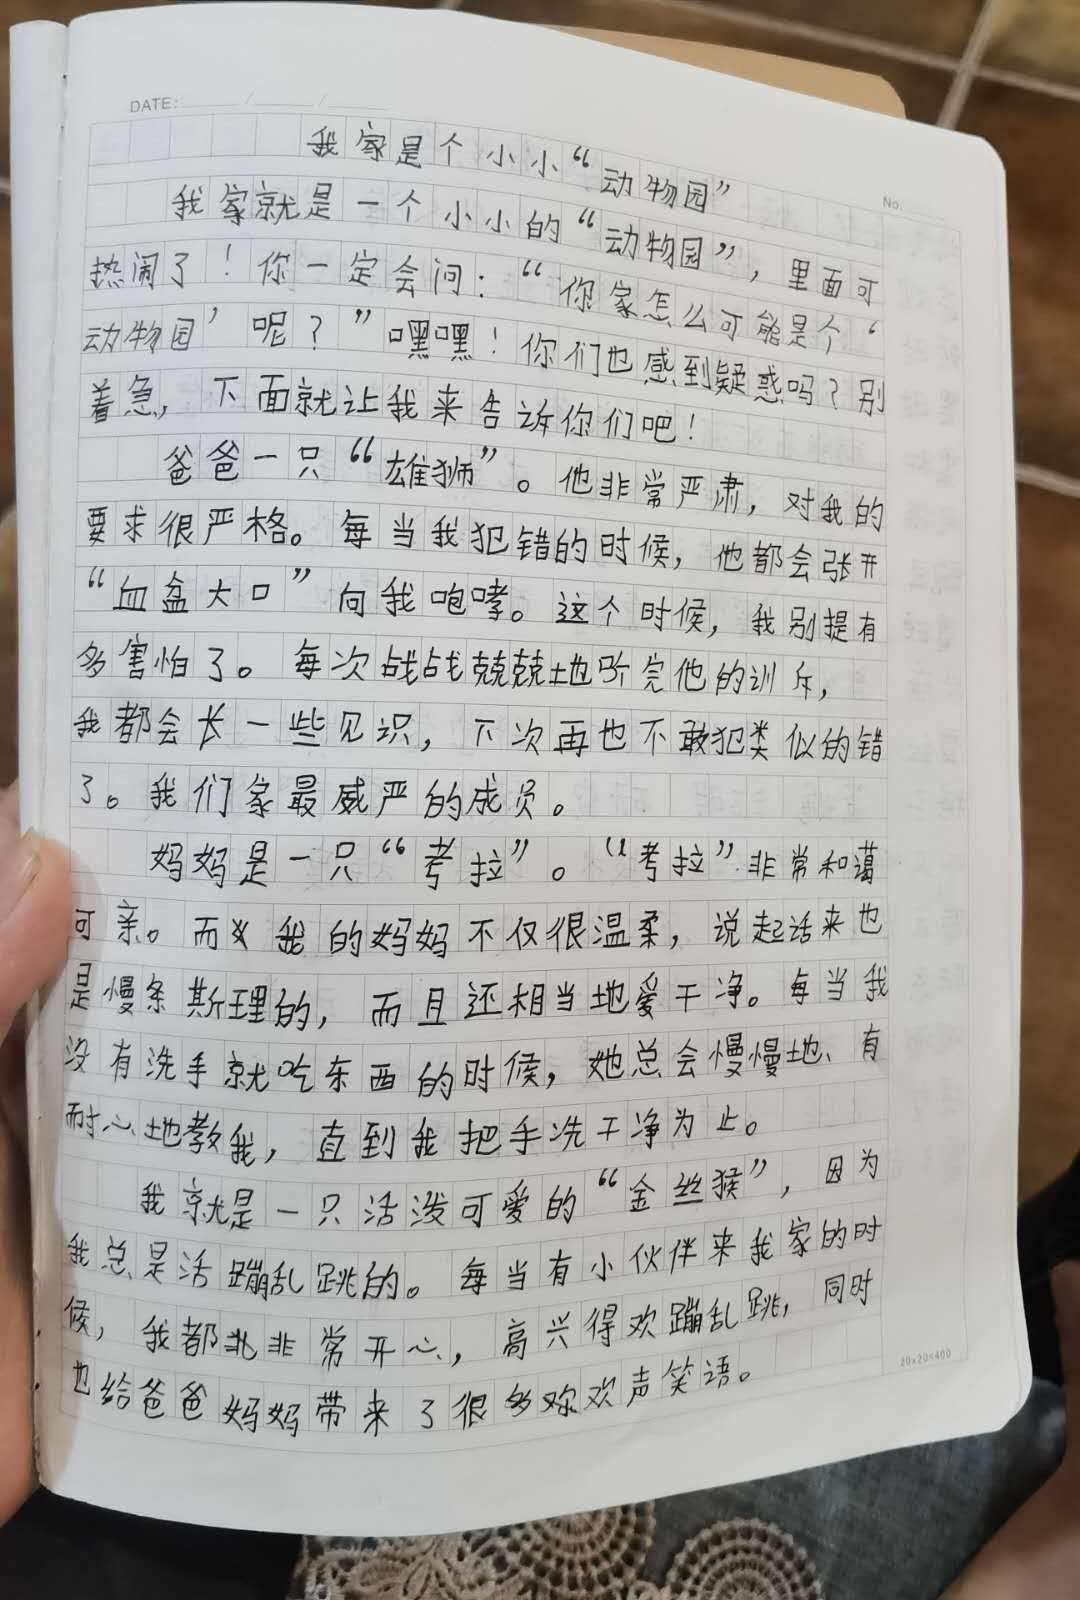 DATE: / /
No.
我家是个小小“动物园”
我家就是一个小小的“动物园”，里面可
热闹了！你一定会问：“你家怎么可能是个‘
动物园’呢？”嘿嘿！你们也感到疑惑吗？别
着急，下面就让我来告诉你们吧！
爸爸一只“雄狮”。他非常严肃，对我的
要求很严格。每当我犯错的时候，他都会张开
“血盆大口”向我咆哮。这个时候，我别提有
多害怕了。每次战战兢兢地听完他的训斥，
我都会长一些见识，下次再也不敢犯类似的错
了。我们家最威严的成员。
妈妈是一只“考拉”。“考拉”非常和蔼
可亲。而我的妈妈不仅很温柔，说起话来也
是慢条斯理的，而且还相当地爱干净。每当我
没有洗手就吃东西的时候，她总会慢慢地、有
耐心地教我，直到我把手洗干净为止。
我就是一只活泼可爱的“金丝猴”，因为
我总是活蹦乱跳的。每当有小伙伴来我家的时
候，我都非常开心，高兴得欢蹦乱跳，同时
也给爸爸妈妈带来了很多欢声笑语。
20×20=400